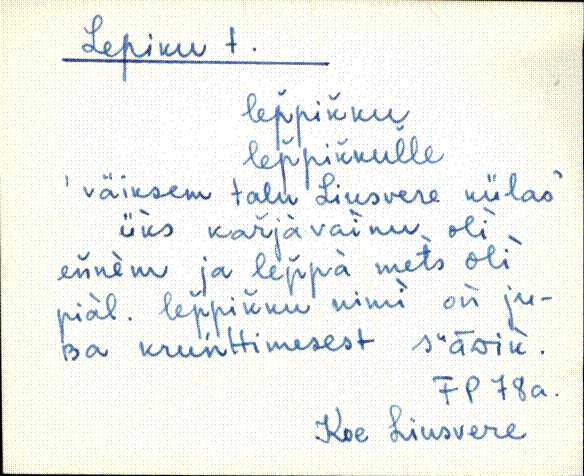 Lepiku t.
lep̆pik̆ku
lep̆pik̆kul̆le
'väiksem talu Liusvere külas'
üks kar̆jàvaìnu olì
en̆nèm ja lep̆pà mets olì
piàl. lep̆pik̆ku nimì on ju-
Ba krunttimesest
FP 78a.
Koe Liusvere